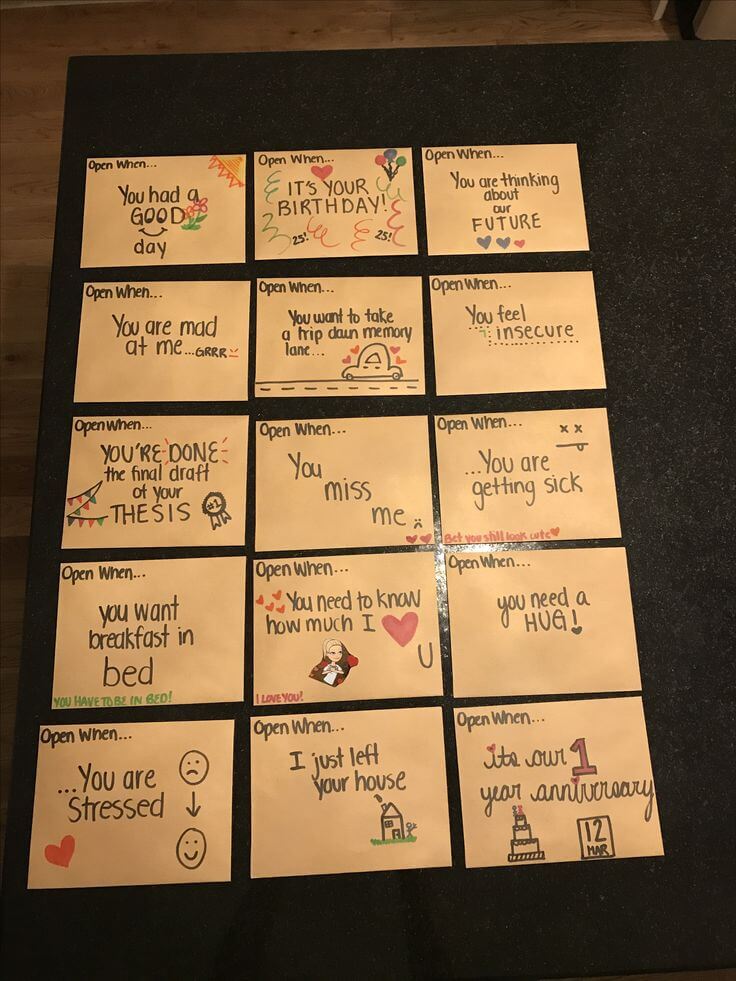 Open When...
You had a
GOOD
day
Open When...
IT'S YOUR
BIRTHDAY!
25! 25!
Open When...
You are thinking
about
our
FUTURE
Open When...
You are mad
at me...GRRR
Open When...
You want to take
a trip down memory
lane...
Open When...
You feel
insecure
Open When...
YOU'RE DONE
the final draft
of your
THESIS
#1
Open When...
You
miss
me
Open When...
...You are
getting sick
Bet you still look cute
Open When...
you want
breakfast in
bed
YOU HAVE TO BE IN BED!
Open When...
You need to know
how much I
U
I LOVE YOU!
Open When...
you need a
HUG!
Open When...
...You are
Stressed
Open When...
I just left
your house
Open When...
its our 1
year anniversary
12
MAR